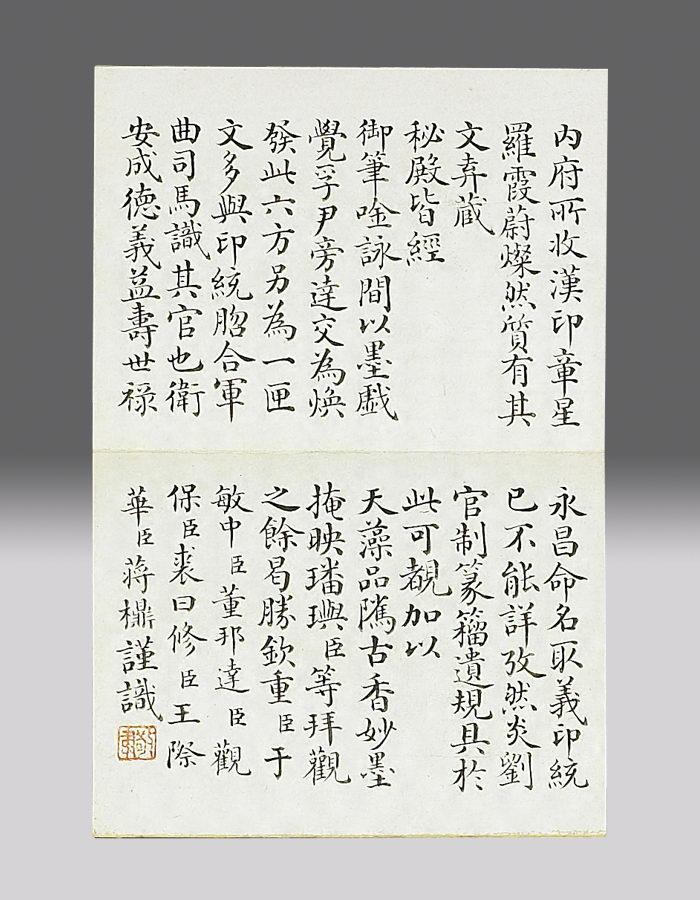 内府所收漢印章星
羅霞蔚燦然質有其
文弆藏
秘殿皆經
御筆唫詠間以墨戲
覺孚尹旁達交為煥
發此六方另為一匣
文多與印統脗合軍
曲司馬識其官也衛
安成德義益壽世禄
永昌命名取義印統
已不能詳攷然炎劉
官制篆籀遺規具於
此可覩加以
天藻品隲古香妙墨
掩映璠璵臣等拜觀
之餘曷勝欽重臣于
敏中臣董邦達臣觀
保臣裘曰修臣王際
華臣蔣謹識